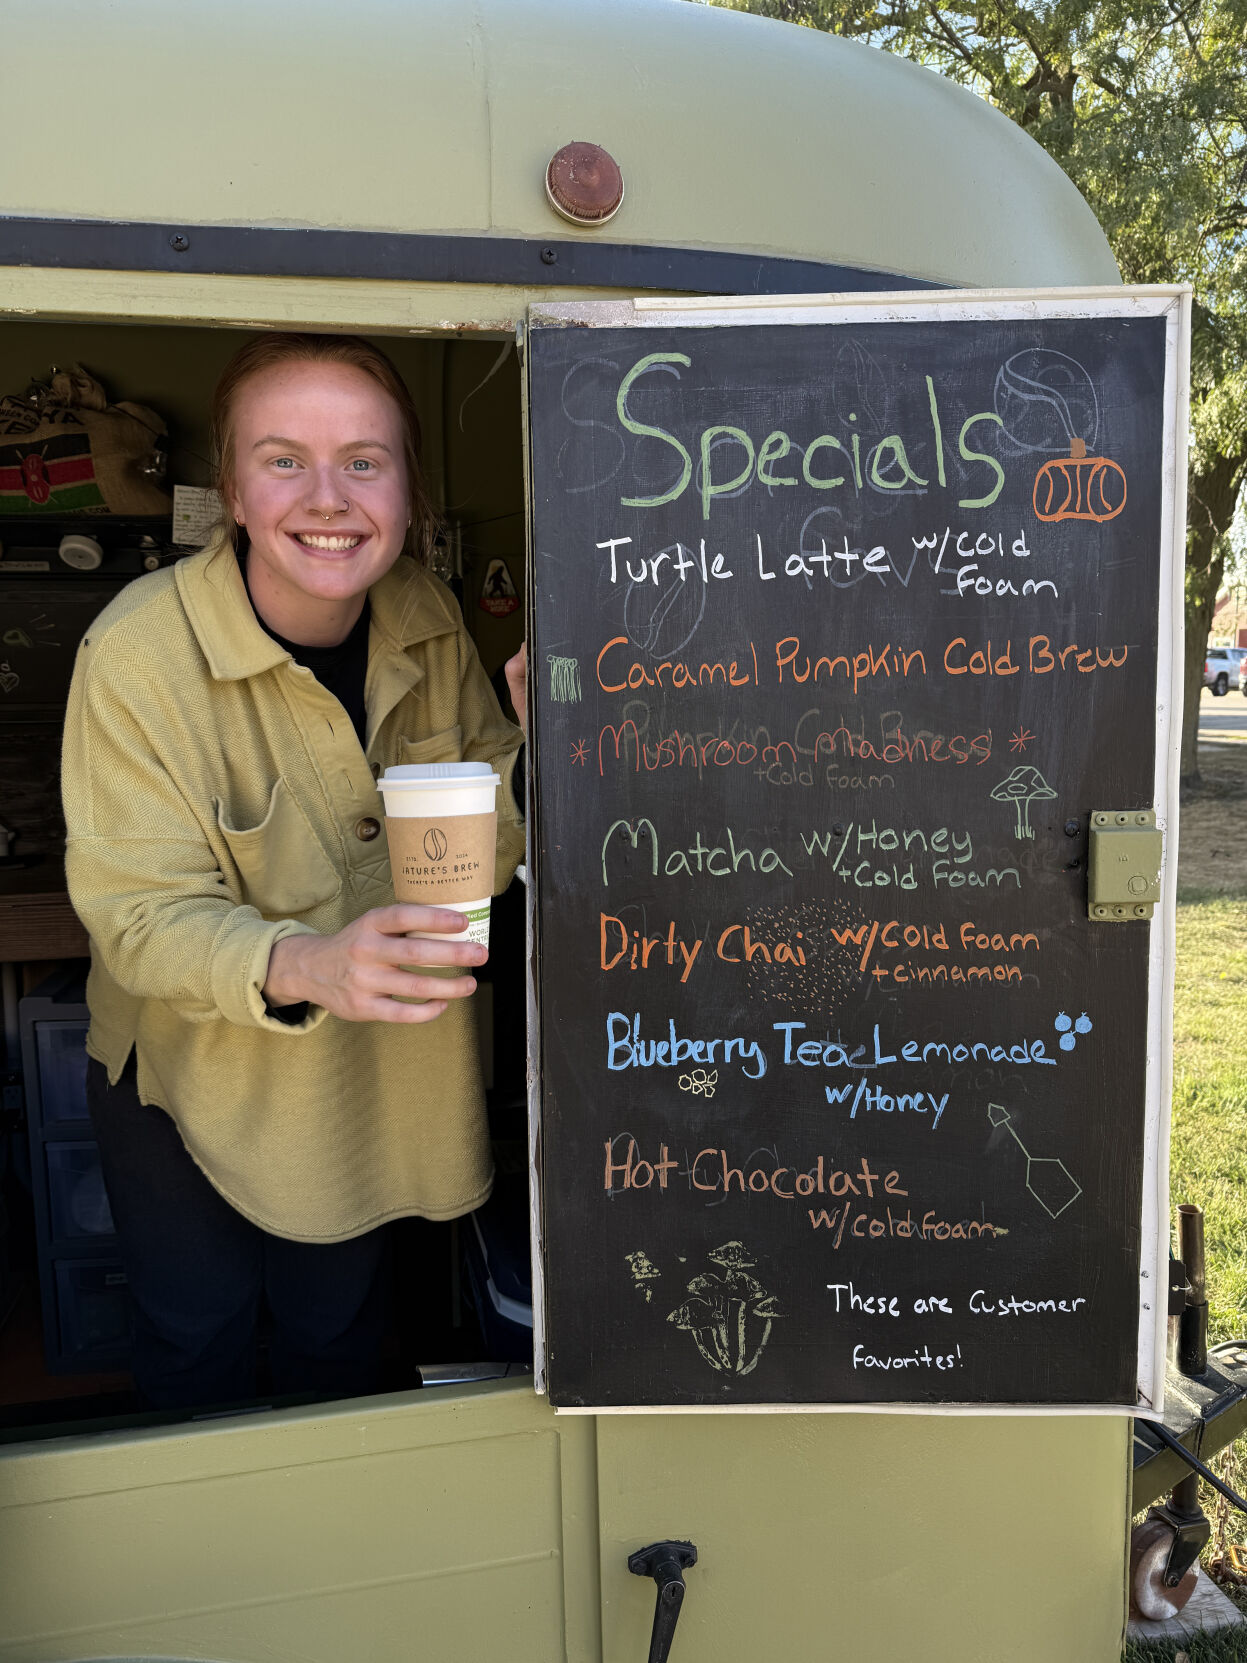 Specials
Turtle Latte w/Cold
Foam
Caramel Pumpkin Cold Brew
*Mushroom Madness*
+Cold Foam
Matcha w/Honey
+Cold Foam
Dirty Chai w/Cold Foam
+cinnamon
Blueberry Tea Lemonade
w/Honey
Hot Chocolate
w/coldfoam
These are Customer
Favorites!
ESTD. 2024
NATURE'S BREW
THERE'S A BETTER WAY
WORLD
TAKE A
HIKE